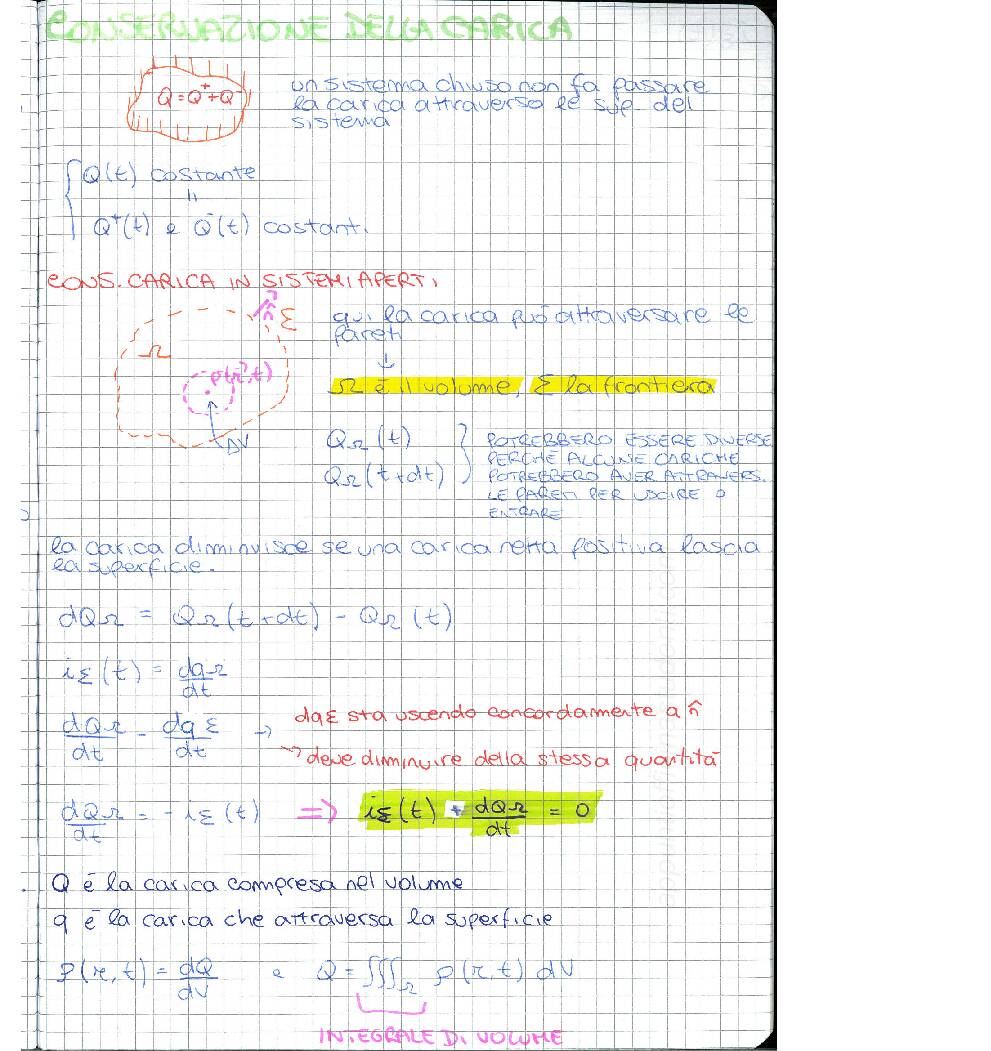 CONSERVAZIONE DELLA CARICA
Q = Q⁺ + Q⁻
un sistema chiuso non fa passare
la carica attraverso le sup. del
sistema
Q(t) costante
"
Q⁺(t) e Q⁻(t) costanti
CONS. CARICA IN SISTEMI APERTI
n̂
Σ
Ω
ρ(r⃗,t)
ΔV
qui la carica può attraversare le
pareti
↓
Ω è il volume, Σ la frontiera
QΩ(t)
QΩ(t+dt)
POTREBBERO ESSERE DIVERSE
PERCHÉ ALCUNE CARICHE
POTREBBERO AVER ATTRAVERS.
LE PARETI PER USCIRE O
ENTRARE
la carica diminuisce se una carica netta positiva lascia
la superficie.
dQΩ = QΩ(t+dt) - QΩ(t)
iΣ(t) = dqΩ/dt
dQΩ/dt = dqΣ/dt →
dqΣ sta uscendo concordamente a n̂
→ deve diminuire della stessa quantità
dQΩ/dt = - iΣ(t) => iΣ(t) + dQΩ/dt = 0
Q è la carica compresa nel volume
q è la carica che attraversa la superficie
ρ(r,t) = dQ/dV e Q = ∭Ω ρ(r,t) dV
INTEGRALE DI VOLUME